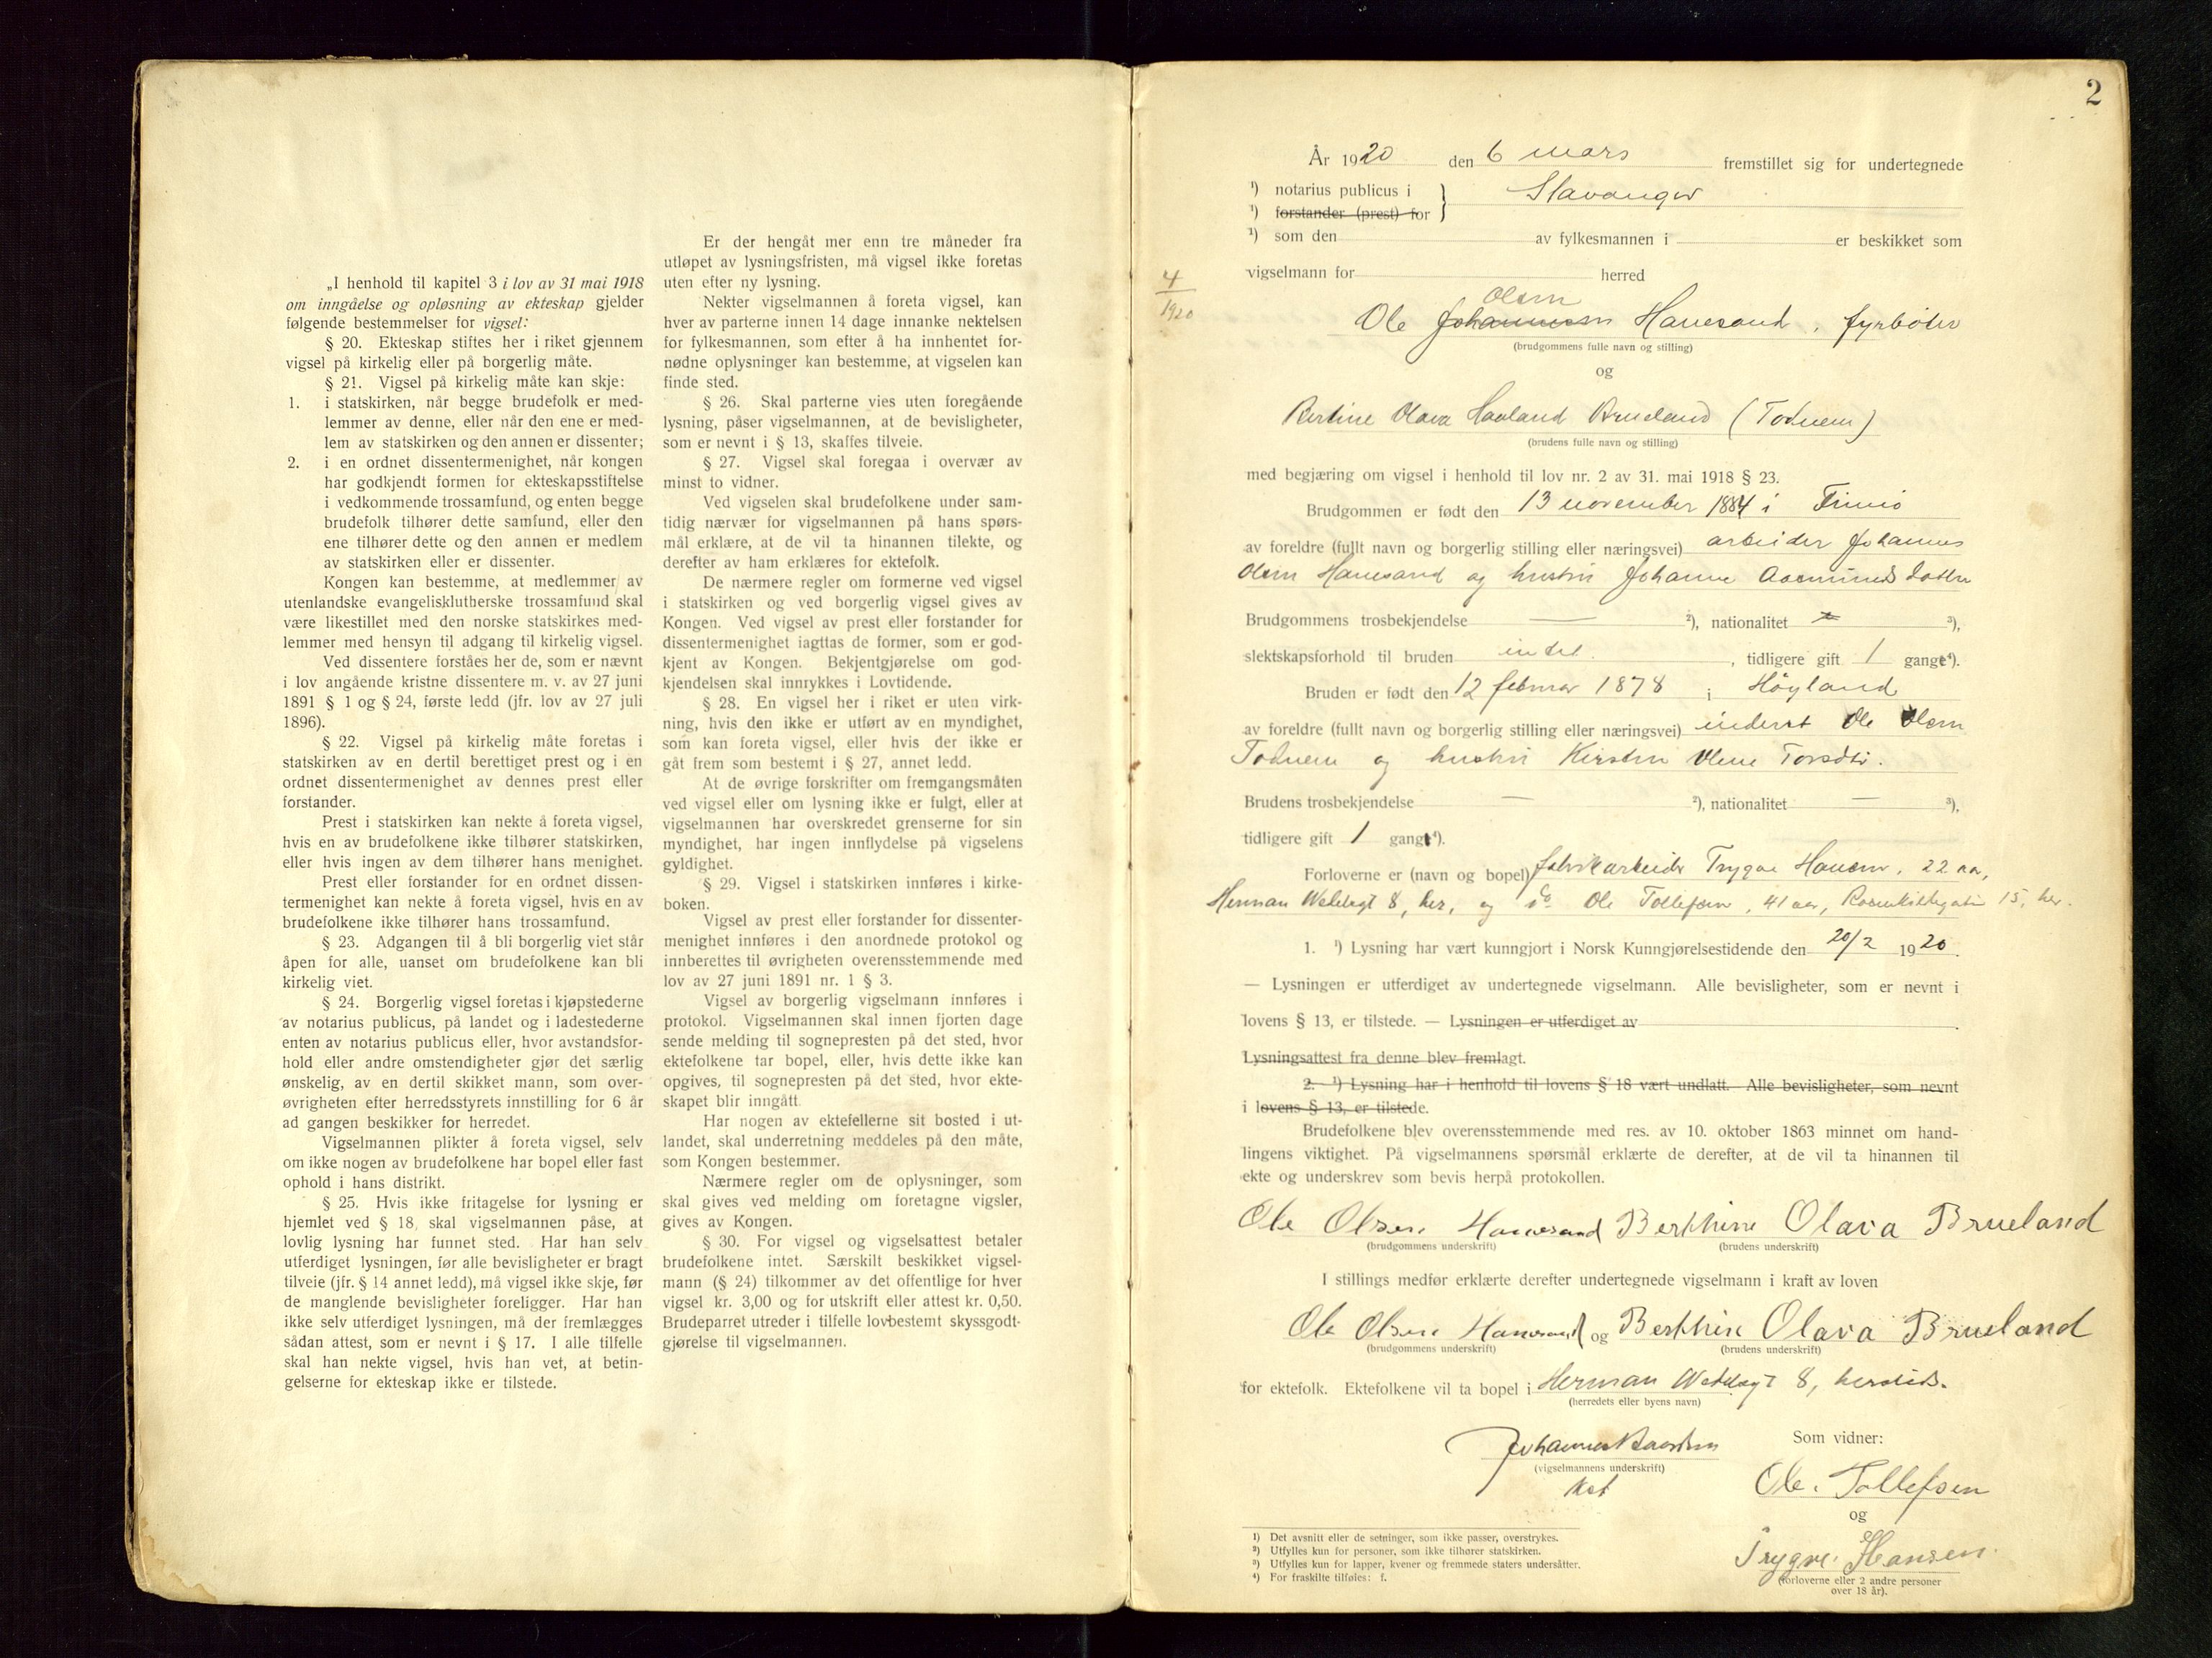 „I henhold til kapitel 3 i lov av 31 mai 1918
om inngåelse og opløsning av ekteskap gjelder
følgende bestemmelser for vigsel:
§ 20. Ekteskap stiftes her i riket gjennem
vigsel på kirkelig eller på borgerlig måte.
§ 21. Vigsel på kirkelig måte kan skje:
1. i statskirken, når begge brudefolk er med-
lemmer av denne, eller når den ene er med-
lem av statskirken og den annen er dissenter;
2. i en ordnet dissentermenighet, når kongen
har godkjendt formen for ekteskapsstiftelse
i vedkommende trossamfund, og enten begge
brudefolk tilhører dette samfund, eller den
ene tilhører dette og den annen er medlem
av statskirken eller er dissenter.
Kongen kan bestemme, at medlemmer av
utenlandske evangelisklutherske trossamfund skal
være likestillet med den norske statskirkes med-
lemmer med hensyn til adgang til kirkelig vigsel.
Ved dissentere forståes her de, som er nævnt
i lov angående kristne dissentere m. v. av 27 juni
1891 § 1 og § 24, første ledd (jfr. lov av 27 juli
1896).
§ 22. Vigsel på kirkelig måte foretas i
statskirken av en dertil berettiget prest og i en
ordnet dissentermenighet av dennes prest eller
forstander.
Prest i statskirken kan nekte å foreta vigsel,
hvis en av brudefolkene ikke tilhører statskirken,
eller hvis ingen av dem tilhører hans menighet.
Prest eller forstander for en ordnet dissen-
termenighet kan nekte å foreta vigsel, hvis en av
brudefolkene ikke tilhører hans trossamfund.
§ 23. Adgangen til å bli borgerlig viet står
åpen for alle, uanset om brudefolkene kan bli
kirkelig viet.
§ 24. Borgerlig vigsel foretas i kjøpstederne
av notarius publicus, på landet og i ladestederne
enten av notarius publicus eller, hvor avstandsfor-
hold eller andre omstendigheter gjør det særlig
ønskelig, av en dertil skikket mann, som over-
øvrigheten efter herredsstyrets innstilling for 6 år
ad gangen beskikker for herredet.
Vigselmannen plikter å foreta vigsel, selv
om ikke nogen av brudefolkene har bopel eller fast
ophold i hans distrikt.
§ 25. Hvis ikke fritagelse for lysning er
hjemlet ved § 18, skal vigselmannen påse, at
lovlig lysning har funnet sted. Har han selv
utferdiget lysningen, før alle bevisligheter er bragt
tilveie (jfr. § 14 annet ledd), må vigsel ikke skje, før
de manglende bevisligheter foreligger. Har han
ikke selv utferdiget lysningen, må der fremlægges
sådan attest, som er nevnt i § 17. I alle tilfelle
skal han nekte vigsel, hvis han vet, at betin-
gelserne for ekteskap ikke er tilstede.
Er der hengåt mer enn tre måneder fra
utløpet av lysningsfristen, må vigsel ikke foretas
uten efter ny lysning.
Nekter vigselmannen å foreta vigsel, kan
hver av parterne innen 14 dage innanke nektelsen
for fylkesmannen, som efter å ha innhentet for-
nødne oplysninger kan bestemme, at vigselen kan
finde sted.
§ 26. Skal parterne vies uten foregående
lysning, påser vigselmannen, at de bevisligheter,
som er nevnt i § 13, skaffes tilveie.
§ 27. Vigsel skal foregaa i overvær av
minst to vidner.
Ved vigselen skal brudefolkene under sam-
tidig nærvær for vigselmannen på hans spørs-
mål erklære, at de vil ta hinannen tilekte, og
derefter av ham erklæres for ektefolk.
De nærmere regler om formerne ved vigsel
i statskirken og ved borgerlig vigsel gives av
Kongen. Ved vigsel av prest eller forstander for
dissentermenighet iagttas de former, som er god-
kjent av Kongen. Bekjentgjørelse om god-
kjendelsen skal innrykkes i Lovtidende.
§ 28. En vigsel her i riket er uten virk-
ning, hvis den ikke er utført av en myndighet,
som kan foreta vigsel, eller hvis der ikke er
gåt frem som bestemt i § 27, annet ledd.
At de øvrige forskrifter om fremgangsmåten
ved vigsel eller om lysning ikke er fulgt, eller at
vigselmannen har overskredet grenserne for sin
myndighet, har ingen innflydelse på vigselens
gyldighet.
§ 29. Vigsel i statskirken innføres i kirke-
boken.
Vigsel av prest eller forstander for dissenter-
menighet innføres i den anordnede protokol og
innberettes til øvrigheten overensstemmende med
lov av 27 juni 1891 nr. 1 § 3.
Vigsel av borgerlig vigselmann innføres i
protokol. Vigselmannen skal innen fjorten dage
sende melding til sognepresten på det sted, hvor
ektefolkene tar bopel, eller, hvis dette ikke kan
opgives, til sognepresten på det sted, hvor ekte-
skapet blir inngått.
Har nogen av ektefellerne sit bosted i ut-
landet, skal underretning meddeles på den måte,
som Kongen bestemmer.
Nærmere regler om de oplysninger, som
skal gives ved melding om foretagne vigsler,
gives av Kongen.
§ 30. For vigsel og vigselsattest betaler
brudefolkene intet. Særskilt beskikket vigsel-
mann (§ 24) tilkommer av det offentlige for hver
vigsel kr. 3,00 og for utskrift eller attest kr. 0,50.
Brudeparret utreder i tilfelle lovbestemt skyssgodt-
gjørelse til vigselmannen.
2
År 1920 den 6 mars fremstillet sig for undertegnede
¹) notarius publicus i } Stavanger
¹) forstander (prest) for
¹) som den av fylkesmannen i er beskikket som
vigselmann for herred
4/1920
Olsen
Ole Johannesen Hanesand, fyrbøter
(brudgommens fulle navn og stilling)
og
Bertine Olava Haaland Brueland (Todnem)
(brudens fulle navn og stilling)
med begjæring om vigsel i henhold til lov nr. 2 av 31. mai 1918 § 23.
Brudgommen er født den 13 november 1884 i Finnø
av foreldre (fullt navn og borgerlig stilling eller næringsvei) arbeider Johannes
Olsen Hanesand og hustru Johanne Aasmundsdatter
Brudgommens trosbekjendelse — ²), nationalitet ³),
slektskapsforhold til bruden intet. , tidligere gift 1 gange⁴).
Bruden er født den 12 februar 1878 i Høyland
av foreldre (fullt navn og borgerlig stilling eller næringsvei) inderst Ole Olsen
Todnem og hustru Kirsten Olene Torsdtr.
Brudens trosbekjendelse — ²), nationalitet — ³),
tidligere gift 1 gang⁴).
Forloverne er (navn og bopel) fabrikarbeider Trygve Hansen, 22 aar,
Herman Wedelsgt 8, her, og do Ole Tollefsen, 41 aar, Rosenkildegaten 15, her.
1. ¹) Lysning har vært kunngjort i Norsk Kunngjørelsestidende den 20/2 1920.
— Lysningen er utferdiget av undertegnede vigselmann. Alle bevisligheter, som er nevnt i
lovens § 13, er tilstede. — Lysningen er utferdiget av
Lysningsattest fra denne blev fremlagt.
2. ¹) Lysning har i henhold til lovens § 18 vært undlatt. Alle bevisligheter, som nevnt
i lovens § 13, er tilstede.
Brudefolkene blev overensstemmende med res. av 10. oktober 1863 minnet om hand-
lingens viktighet. På vigselmannens spørsmål erklærte de derefter, at de vil ta hinannen til
ekte og underskrev som bevis herpå protokollen.
Ole Olsen Hanesand Berthine Olava Brueland
(brudgommens underskrift) (brudens underskrift)
I stillings medfør erklærte derefter undertegnede vigselmann i kraft av loven
Ole Olsen Hanesand og Berthine Olava Brueland
(brudgommens underskrift) (brudens underskrift)
for ektefolk. Ektefolkene vil ta bopel i Herman Wedelsgt 8, hersteds.
(herredets eller byens navn)
Johannes
(vigselmannens underskrift)
Som vidner:
Ole Tollefsen
og
Trygve Hansen
(forloverne eller 2 andre personer
over 18 år).
¹) Det avsnitt eller de setninger, som ikke passer, overstrykes.
²) Utfylles kun for personer, som ikke tilhører statskirken.
³) Utfylles kun for lapper, kvener og fremmede staters undersåtter.
⁴) For fraskilte tilføies: f.